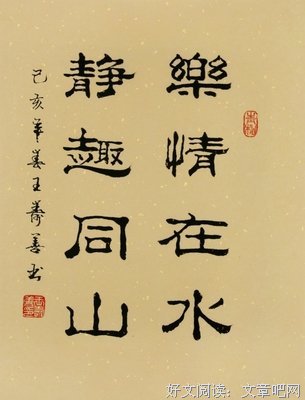 樂情在水
静趣同山
己亥年春王壽善书
好文阅读:文章吧网